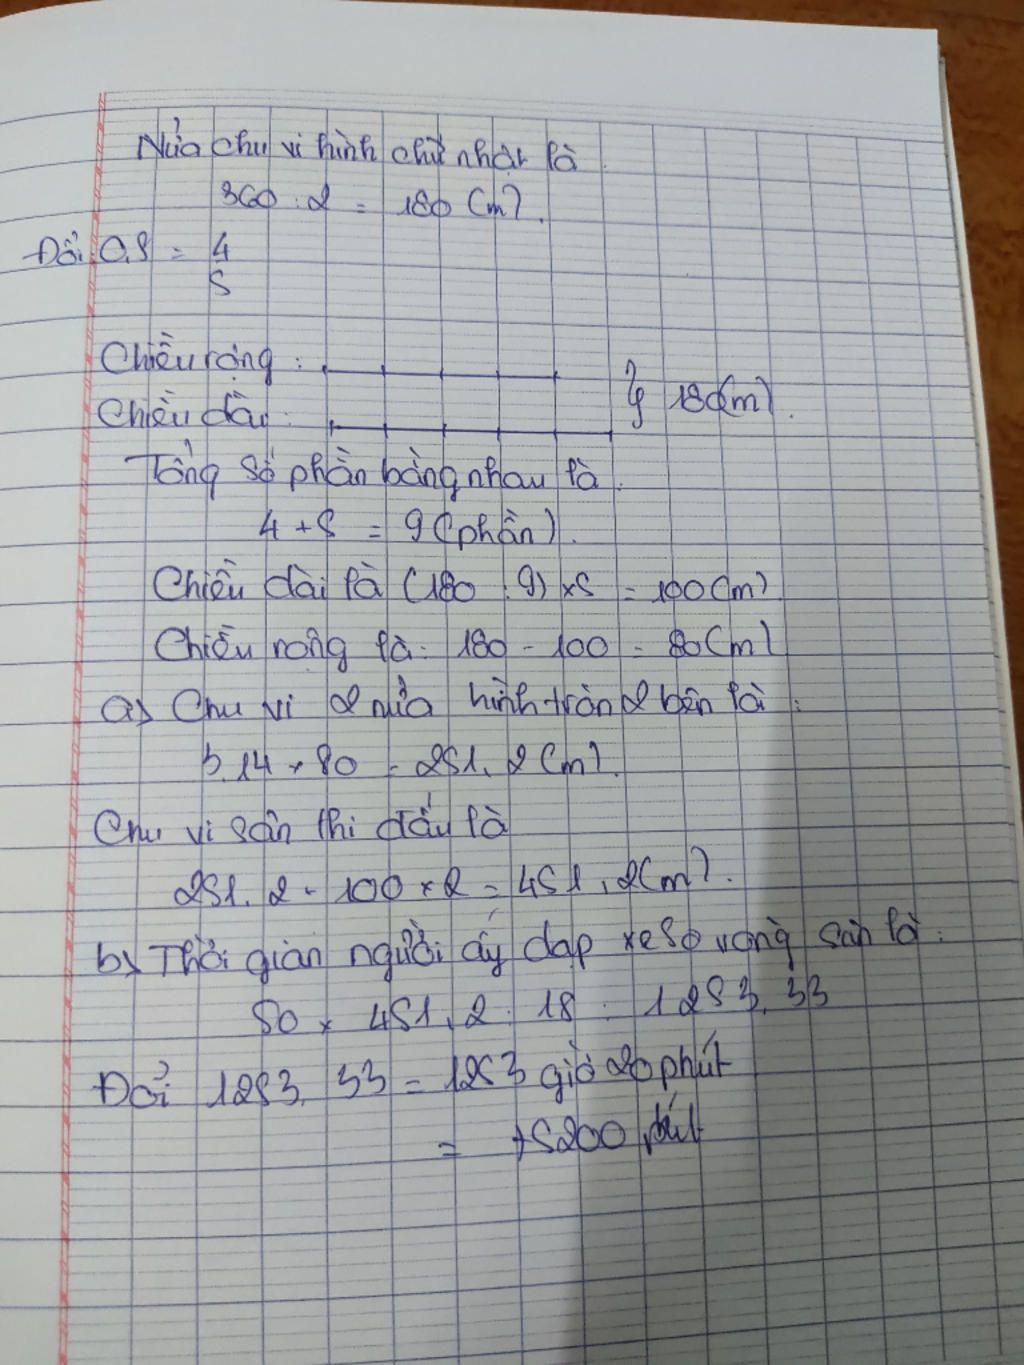 Nửa chu vi hình chữ nhật là
360 : 2 = 180 (m).
Đổi 0,8 = 4
5
Chiều rộng :
Chiều dài :
} 180(m).
Tổng số phần bằng nhau là.
4 + 5 = 9 (phần).
Chiều dài là (180 : 9) x 5 = 100 (m)
Chiều rộng là: 180 - 100 = 80 (m)
a) Chu vi 2 nửa hình tròn 2 bên là :
3,14 x 80 = 251,2 (m).
Chu vi sân thi đấu là
251,2 + 100 x 2 = 451,2 (m).
b) Thời gian người ấy đạp xe 50 vòng sân là :
50 x 451,2 : 18 = 1253,33
Đổi 1253,33 = 1253 giờ 20 phút
= 75200 phút